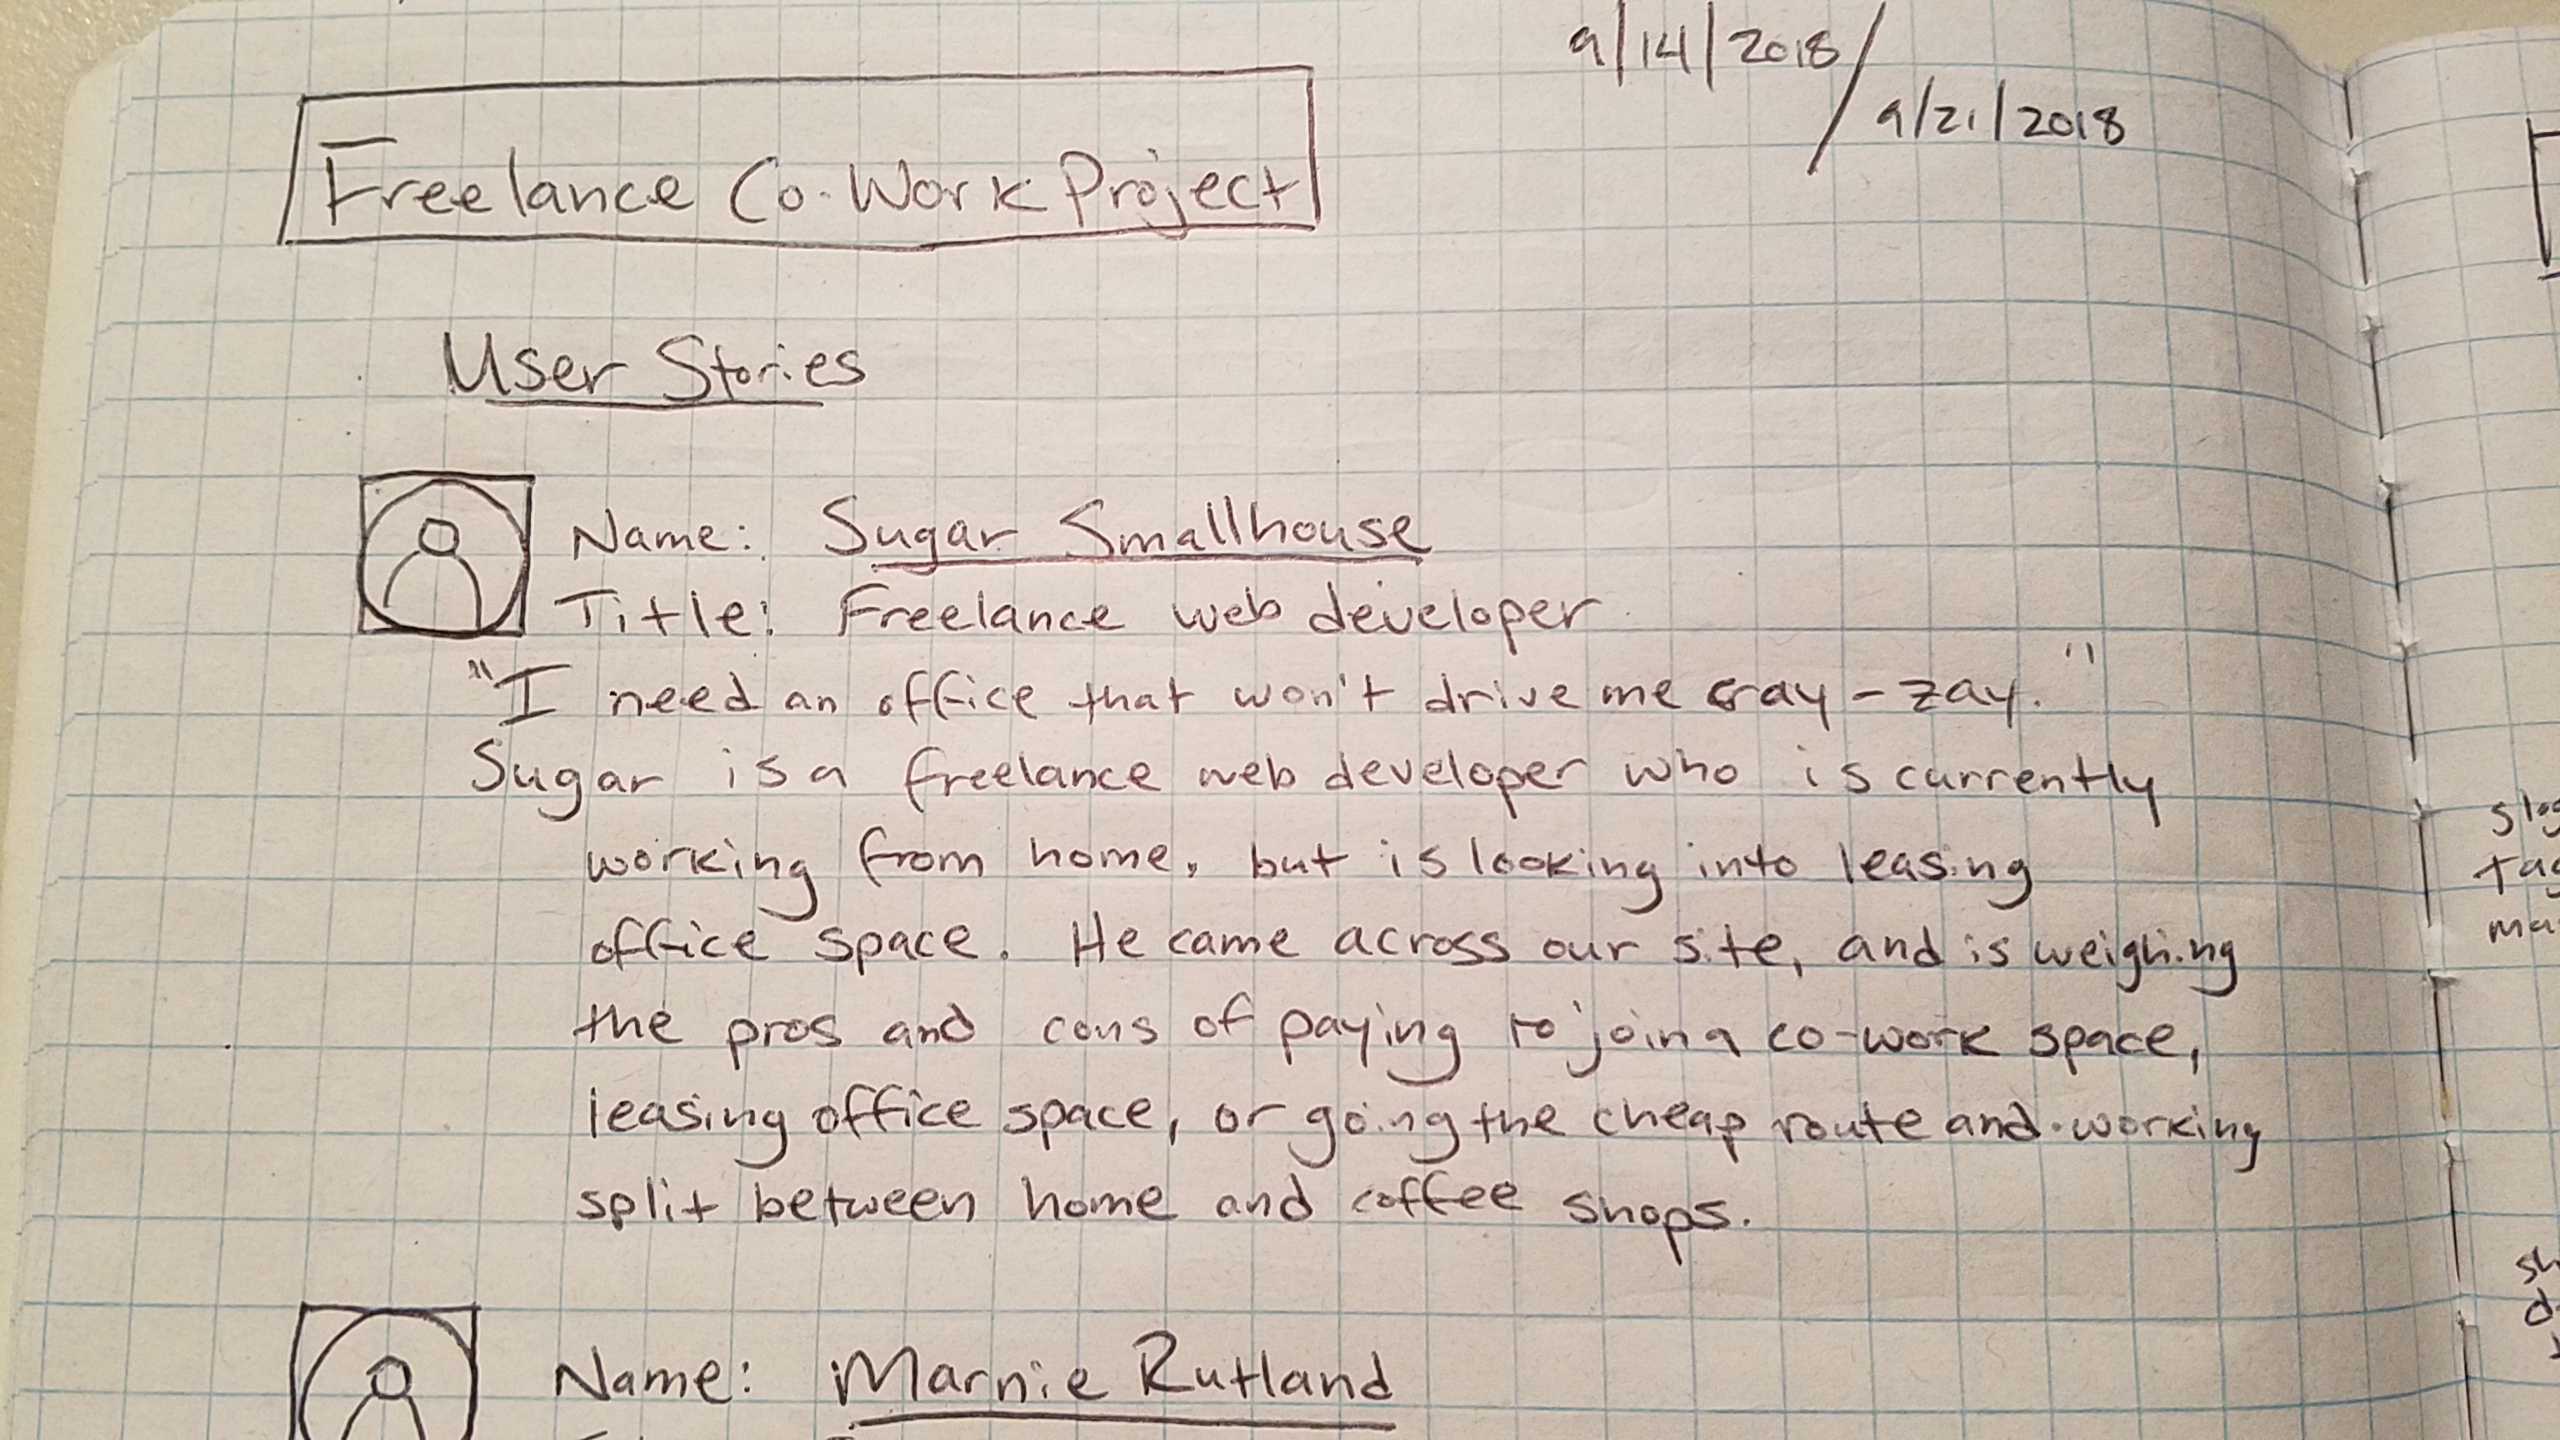 9/14/2018/
9/21/2018
Freelance Co-Work Project
User Stories
Name: Sugar Smallhouse
Title: Freelance web developer
"I need an office that won't drive me cray-zay."
Sugar is a freelance web developer who is currently
working from home, but is looking into leasing
office space. He came across our site, and is weighing
the pros and cons of paying to join a co-work space,
leasing office space, or going the cheap route and working
split between home and coffee shops.
Name: Marnie Rutland